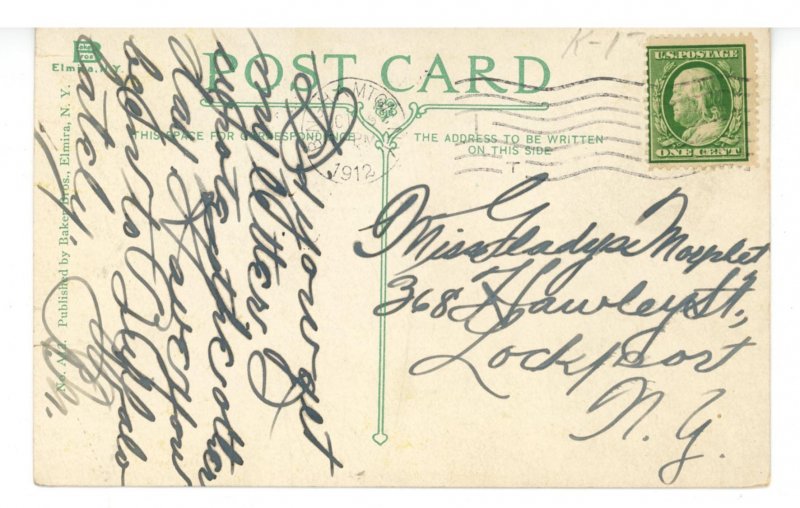 K-1
U.S. POSTAGE
ONE CENT
B
Elmira, N.Y.
POST CARD
THIS SPACE FOR CORRESPONDENCE
THE ADDRESS TO BE WRITTEN
ON THIS SIDE
1912
T
Published by Baker Bros., Elmira, N. Y.
Did you get
my letter I
wrote the other
day. Have you
been to Buffalo
lately.
Miss Gladys
368 Hawley St,
Lockport
N. Y.